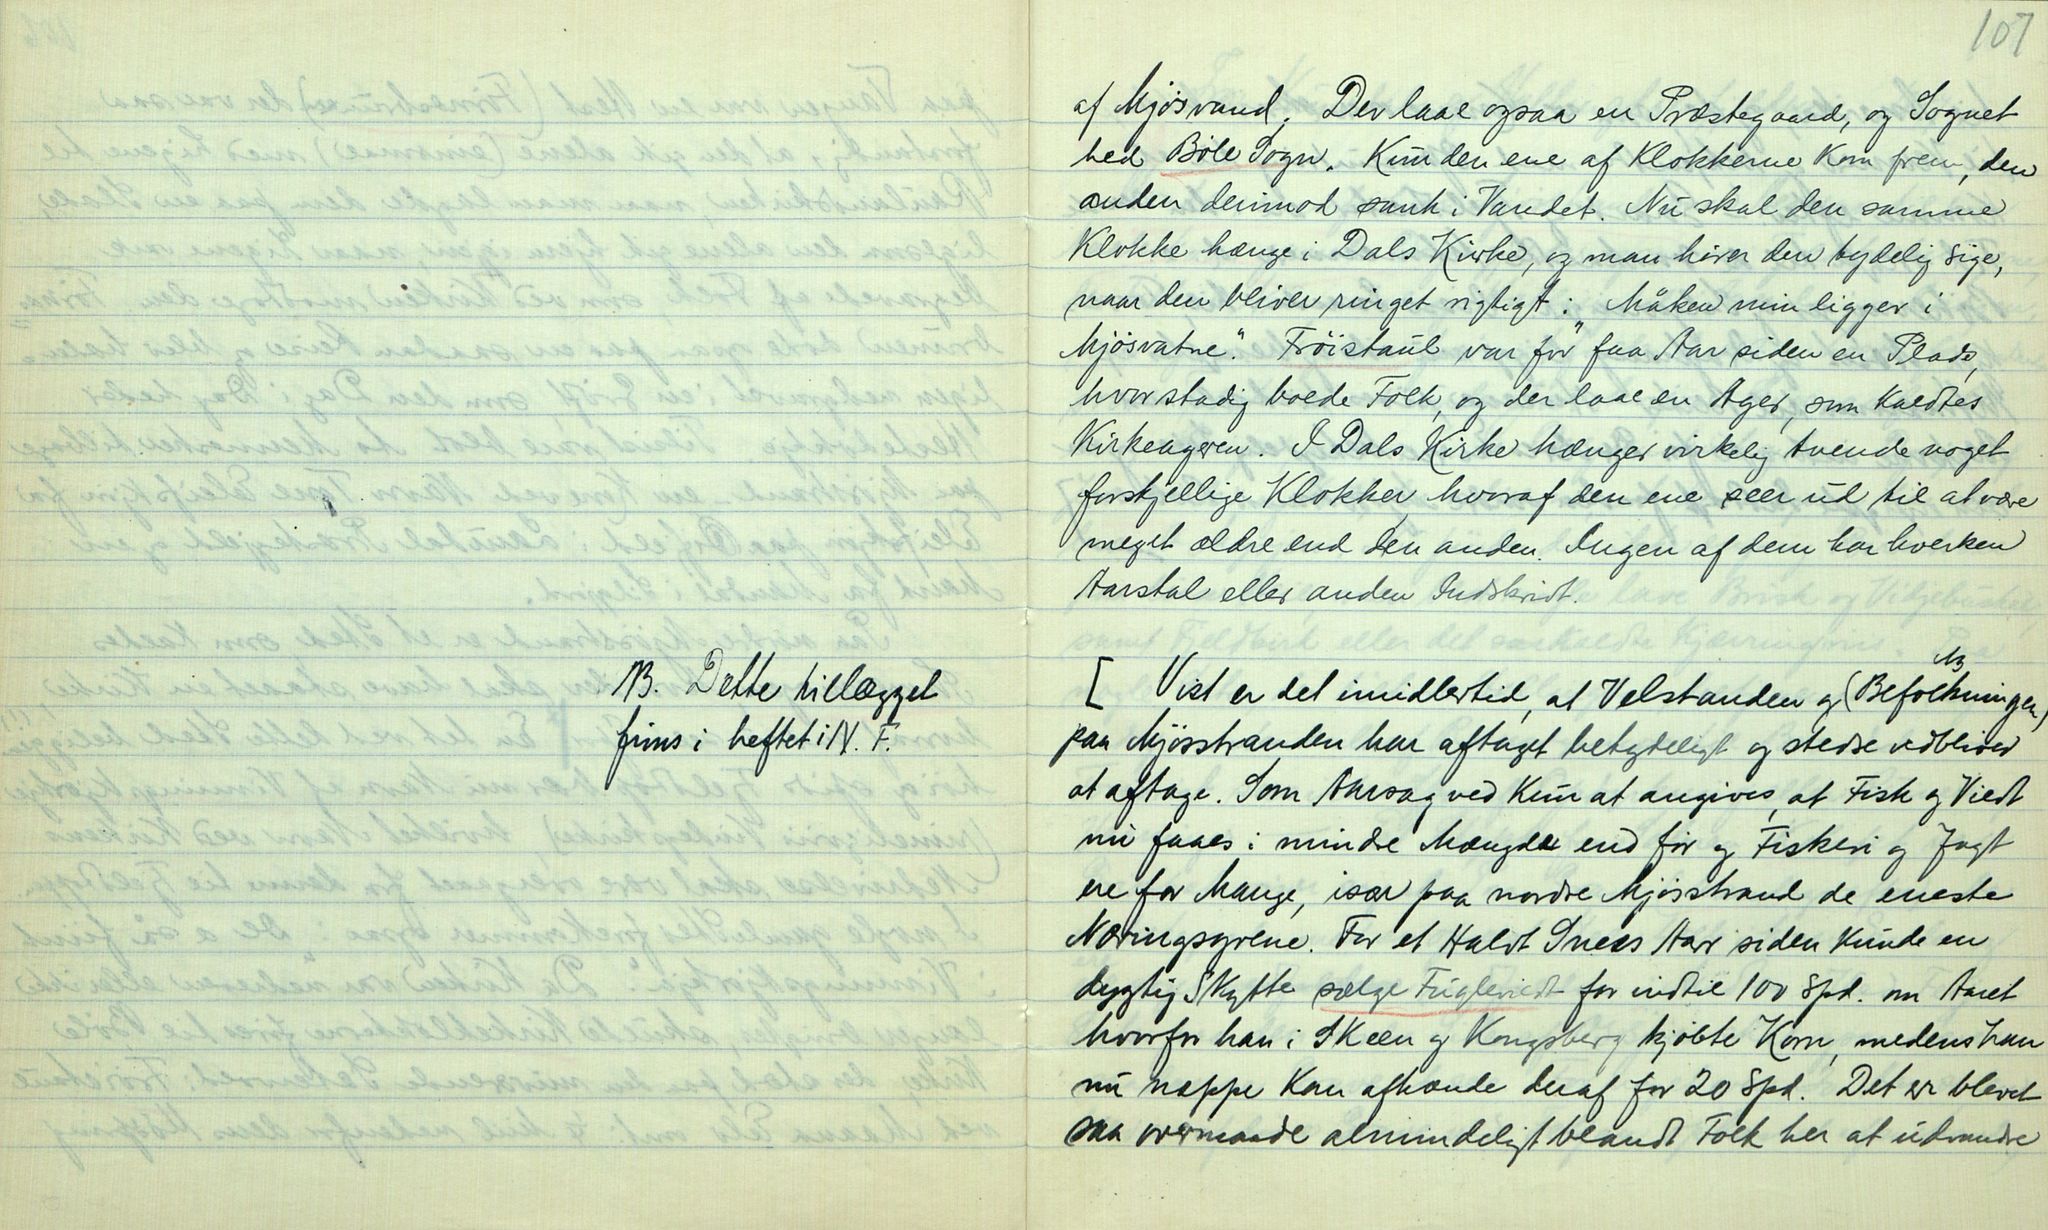 107
af Mjösvand. Der laae ogsaa en Præstegaard, og Sognet
hed Böle Sogn. Kun den ene af Klokkerne kom frem, den
anden derimod sank i Vandet. Nu skal den samme
Klokke hænge i Dals Kirke, og man hörer den tydelig sige,
naar den bliver ringet rigtigt: "Måken min ligger i
Mjösvatne". Fröistaul var for faa Aar siden en Plads,
hvor stadig boede Folk, og der laae en Ager, som kaldtes
Kirkeageren. I Dals Kirke hænger virkelig tvende noget
forskjellige Klokker, hvoraf den ene seer ud til at være
meget ældre end den anden. Ingen af dem har hverken
Aarstal eller anden Indskrift.
NB. Dette tillægget
finns i heftet i N. F.
[ Vist er det imidlertid, at Velstanden og (Befolkningen)
paa Mjösstranden har aftaget betydeligt og stedse vedbliver
at aftage. Som Aarsag ved kun at angives, at Fisk og Vildt
nu faaes i mindre Mængde end för og Fiskeri og Jagt
ere for Mange, især paa nordre Mjösstrand de eneste
Næringsgrene. For et Halvt Snees Aar siden kunde en
dygtig Skytte sælge Fuglevildt for indtil 100 Spd. om Aaret
hvorfor han i Skeen og Kongsberg kjöbte Korn, medens han
nu næppe kan afhænde deraf for 20 Spd. Det er blevet
saa overmaade almindeligt blandt Folk her at udvandre